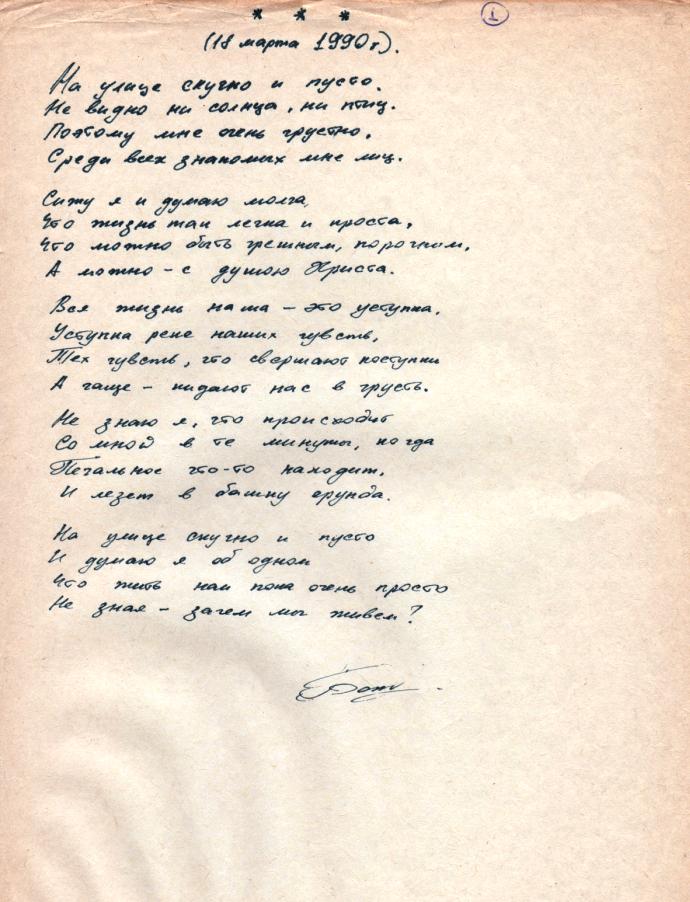 * * *
1
(18 марта 1990 г).
На улице скучно и пусто.
Не видно ни солнца, ни птиц.
Поэтому мне очень грустно,
Среди всех знакомых мне лиц.
Сижу я и думаю молча,
Что жизнь так легка и проста,
Что можно быть грешным, порочным,
А можно – с душою Христа.
Вся жизнь наша – это уступка,
Уступка реке наших чувств,
Тех чувств, что свершают поступки
А чаще – кидают нас в грусть.
Не знаю я, что происходит
Со мной в те минуты, когда
Печальное что-то находит,
И лезет в башку ерунда.
На улице скучно и пусто
И думаю я об одном
Что жить нам пока очень просто
Не зная – зачем мы живем?